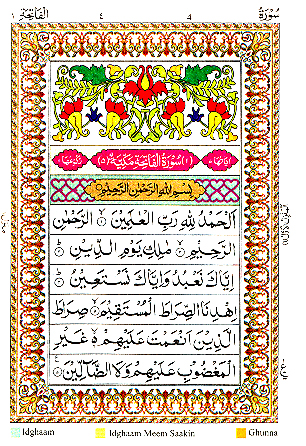 سُورَةُ ٥ ٤ الْفَاتِحَة ١
اٰيَاتُهَا ٧ (١) سُوْرَةُ الْفَاتِحَةِ مَكِّيَّةٌ (٥) رُكُوْعُهَا ١
بِسْمِ اللهِ الرَّحْمٰنِ الرَّحِيْمِ
اَلْحَمْدُ لِلّٰهِ رَبِّ الْعٰلَمِيْنَ ۙ الرَّحْمٰنِ
الرَّحِيْمِ ۙ مٰلِكِ يَوْمِ الدِّيْنِ ؕ
اِيَّاكَ نَعْبُدُ وَاِيَّاكَ نَسْتَعِيْنُ ؕ
اِهْدِنَا الصِّرَاطَ الْمُسْتَقِيْمَ ۙ صِرَاطَ
الَّذِيْنَ اَنْعَمْتَ عَلَيْهِمْ ۙ غَيْرِ
الْمَغْضُوْبِ عَلَيْهِمْ وَلَا الضَّآلِّيْنَ
Idghaam Idghaam Meem Saakin Ghunna